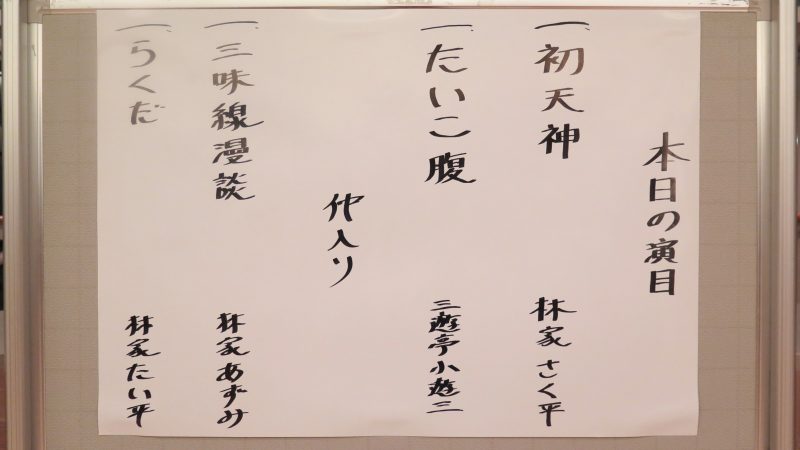 本日の演目
一、初天神 林家さく平
一、たいこ腹 三遊亭小遊三
仲入り
一、三味線漫談 林家あずみ
一、らくだ 林家たい平